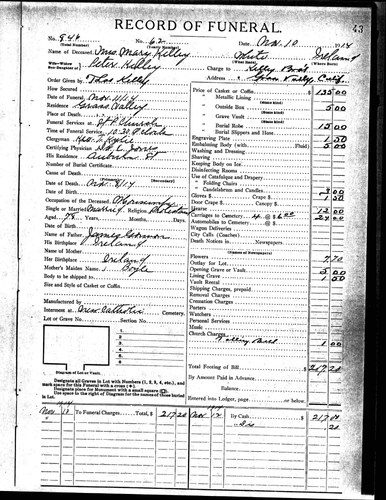 43
RECORD OF FUNERAL.
No. 948 No. 62 Date Nov. 10 1914
(Total Number) (Yearly Number)
Name of Deceased Mrs Mary Kelley White Ireland
(What Race) (Where Born)
Wife Peter Kelley Charge to Kelley Bros
Address Grass Valley, Calif.
Order Given by Thos Kelley
How Secured
Date of Funeral Nov 11/14
Residence Grass Valley
Place of Death
Funeral Services at Church
Time of Funeral Service 10:30 O'clock
Clergyman
Certifying Physician Jones
His Residence Auburn St
Number of Burial Certificate
Cause of Death
Date of Death Nov 9/14
Occupation of the Deceased
Single or Married Religion
Aged 78 Years, Months, Days
Date of Birth
Name of Father James Gannon
His Birthplace Ireland
Name of Mother
Her Birthplace Ireland
Mother's Maiden Name Boyle
Body to be shipped to
Size and Style of Casket or Coffin
Manufactured by
Interment at New Catholic Cemetery.
Lot or Grave No. Section No.
Diagram of Lot or Vault.
Designate all Graves in Lot with Numbers (1, 2, 3, 4, etc.), and
mark space for this Funeral with a small cross (+).
Designate place for Monument with a small square (□).
Use space to right of Diagram for the names of those buried
in Lot.
Price of Casket or Coffin $ 135 00
" Metallic Lining
(State Kind)
" Outside Box 5 00
(State Kind)
" Grave Vault
(State Kind)
" Burial Robe 15 00
(State Kind)
" Burial Slippers and Hose
Engraving Plate 1 50
Embalming Body (with Fluid) 5 00
Washing and Dressing
Shaving
Keeping Body on Ice
Disinfecting Rooms
Use of Catafalque and Drapery
" Folding Chairs
" Candelabrum and Candles 3 00
Gloves $ Crape $ Door Crape $ 1 50
Hearse 12 00
Carriages to Cemetery 4 @ $6.00 24 00
Automobiles to Cemetery @ $
Wagon Deliveries
City Calls (Coaches)
Death Notices in Newspapers
(Names of Newspapers)
Flowers 7 70
Outlay for Lot
Opening Grave or Vault 5 00
Lining Grave 1 50
Vault Rental
Shipping Charges, prepaid
Removal Charges
Cremation Charges
Porters
Watchers
Personal Services
Music
Church Charges
Tolling Bell 1 00
Total Footing of Bill $ 217 20
By Amount Paid in Advance
Balance
Entered into Ledger, page or below.
Nov 11 To Funeral Charges Total, $ 217 20 Nov 12 By Cash $ 217 00
Dis 20